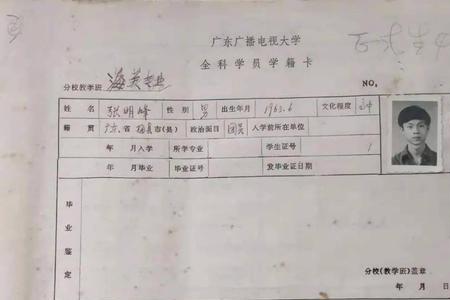 广东广播电视大学
正式生
全科学员学籍卡
分校教学班 英专业 NO。
姓名 张明峰 性别 男 出生年月 1963.6 文化程度 高中
籍贯 广东省 梅县市(县) 政治面目 团员 入学前所在单位
年 月入学 所学专业 学生证号 1
年 月毕业 毕业证号 发毕业证日期
毕业鉴定
分校(教学班)盖章
年 月 日